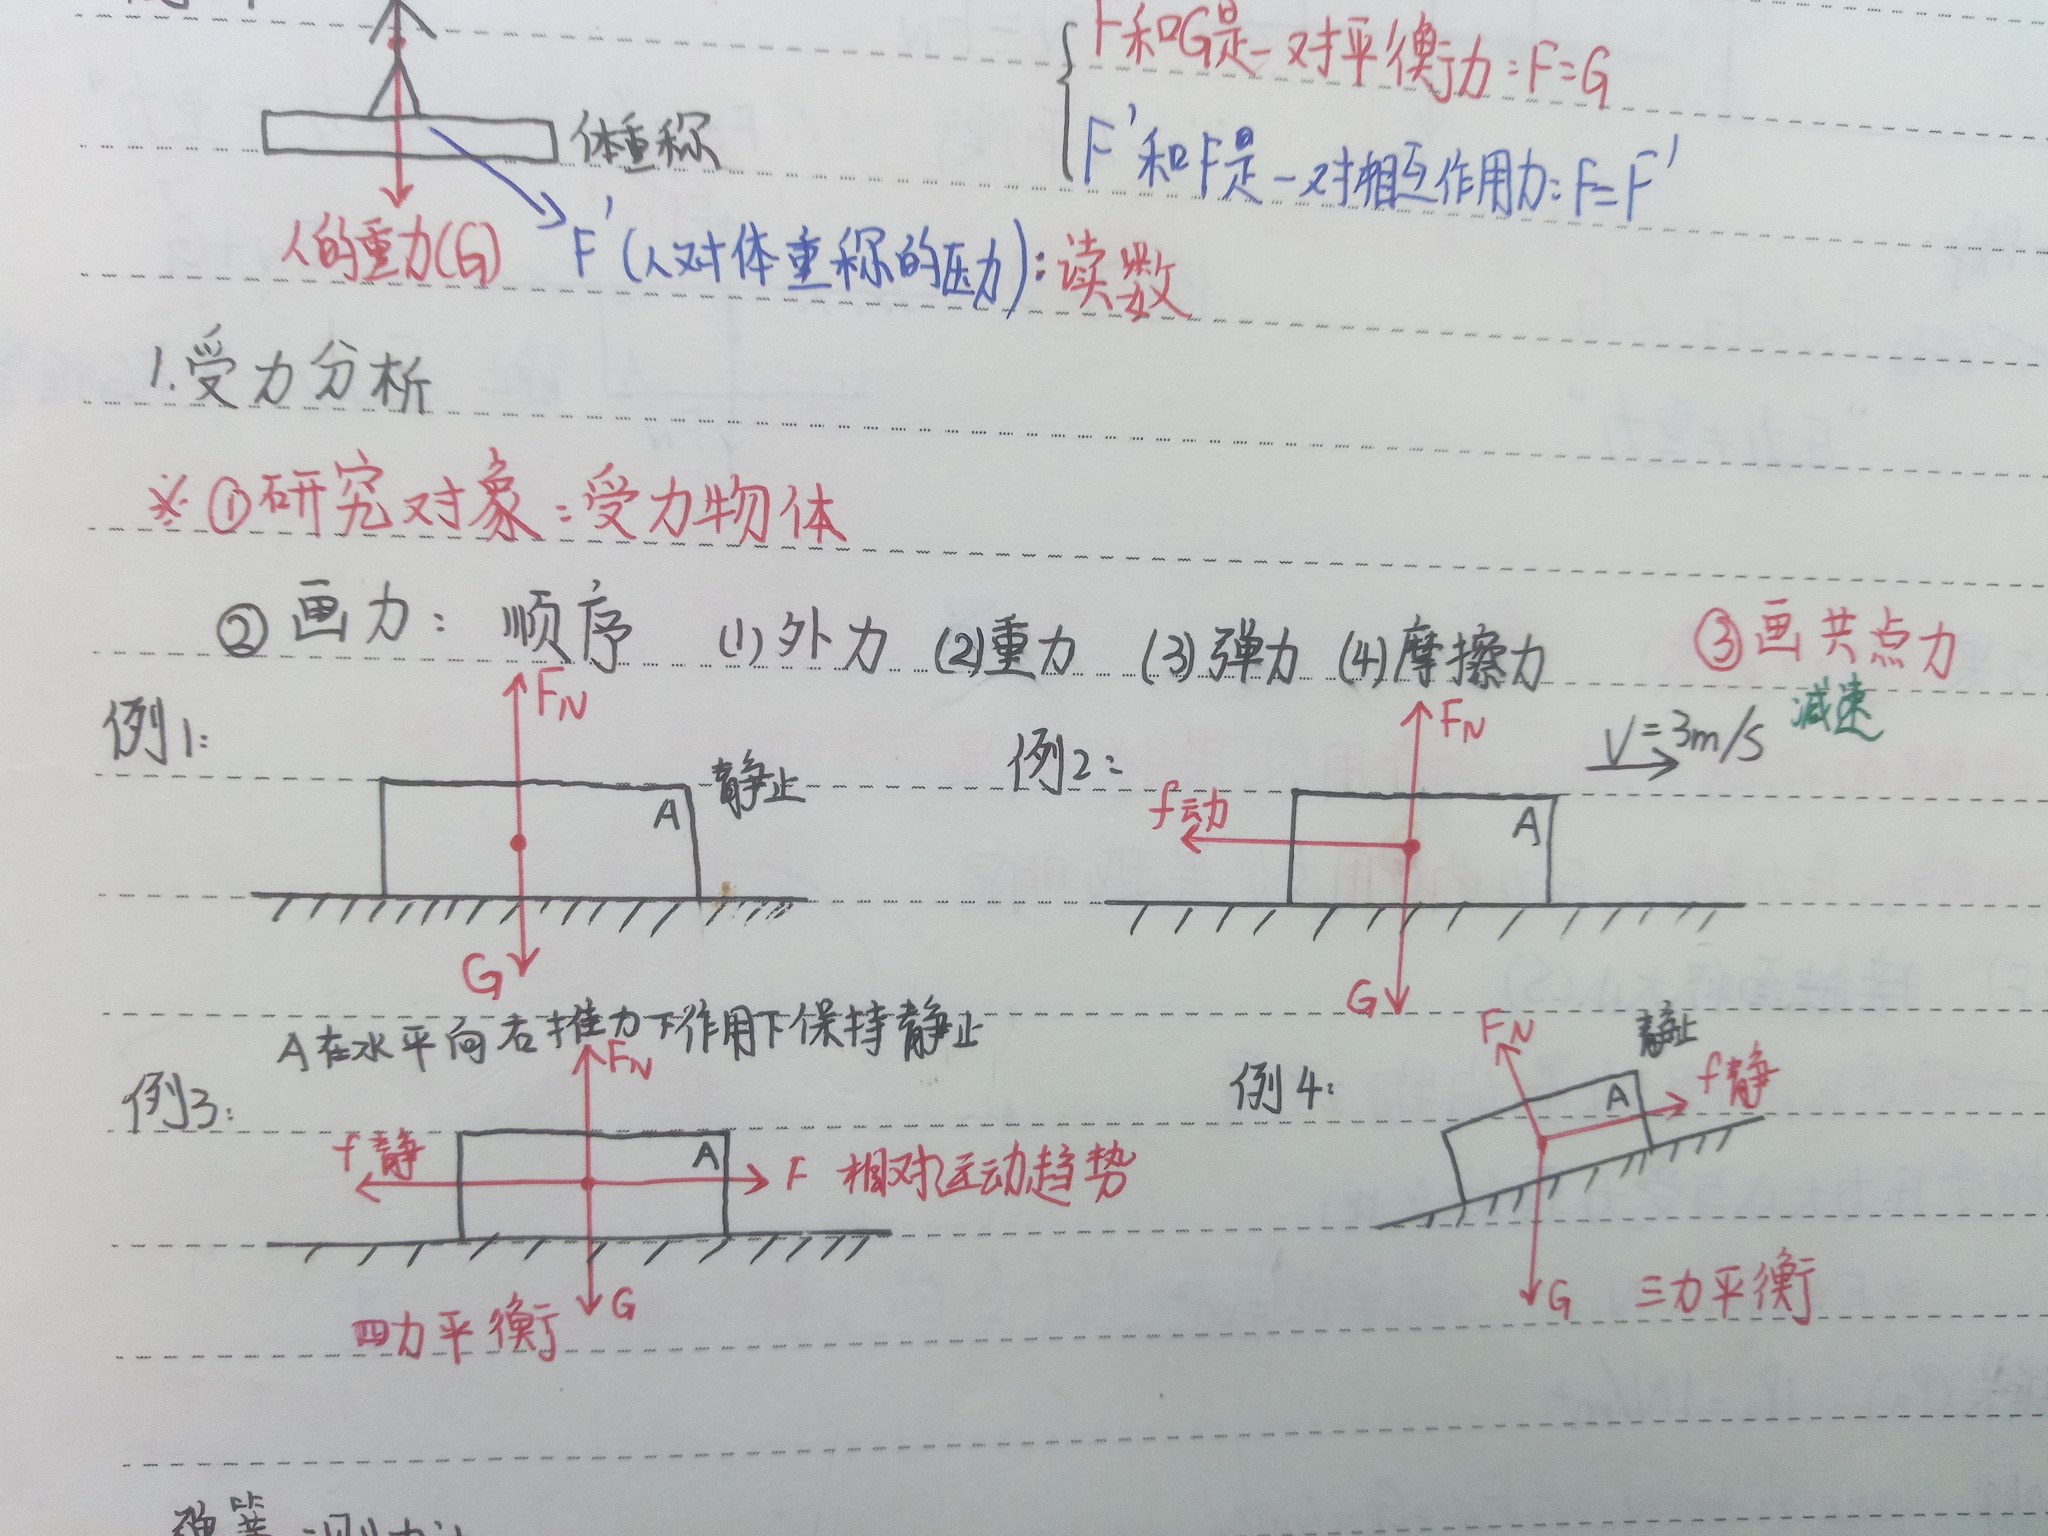 F和G是一对平衡力:F=G
体重称
F'和F是一对相互作用力:F=F'
人的重力(G)
F'(人对体重称的压力):读数
1.受力分析
※①研究对象:受力物体
②画力: 顺序 (1)外力 (2)重力 (3)弹力 (4)摩擦力 ③画共点力
例1:
FN
静止
A
G
例2:
FN
V=3m/s 减速
f动
A
G
A在水平向右推力下作用下保持静止
例3:
FN
f静
A
F 相对运动趋势
G
四力平衡
例4:
FN
静止
f静
A
G
三力平衡